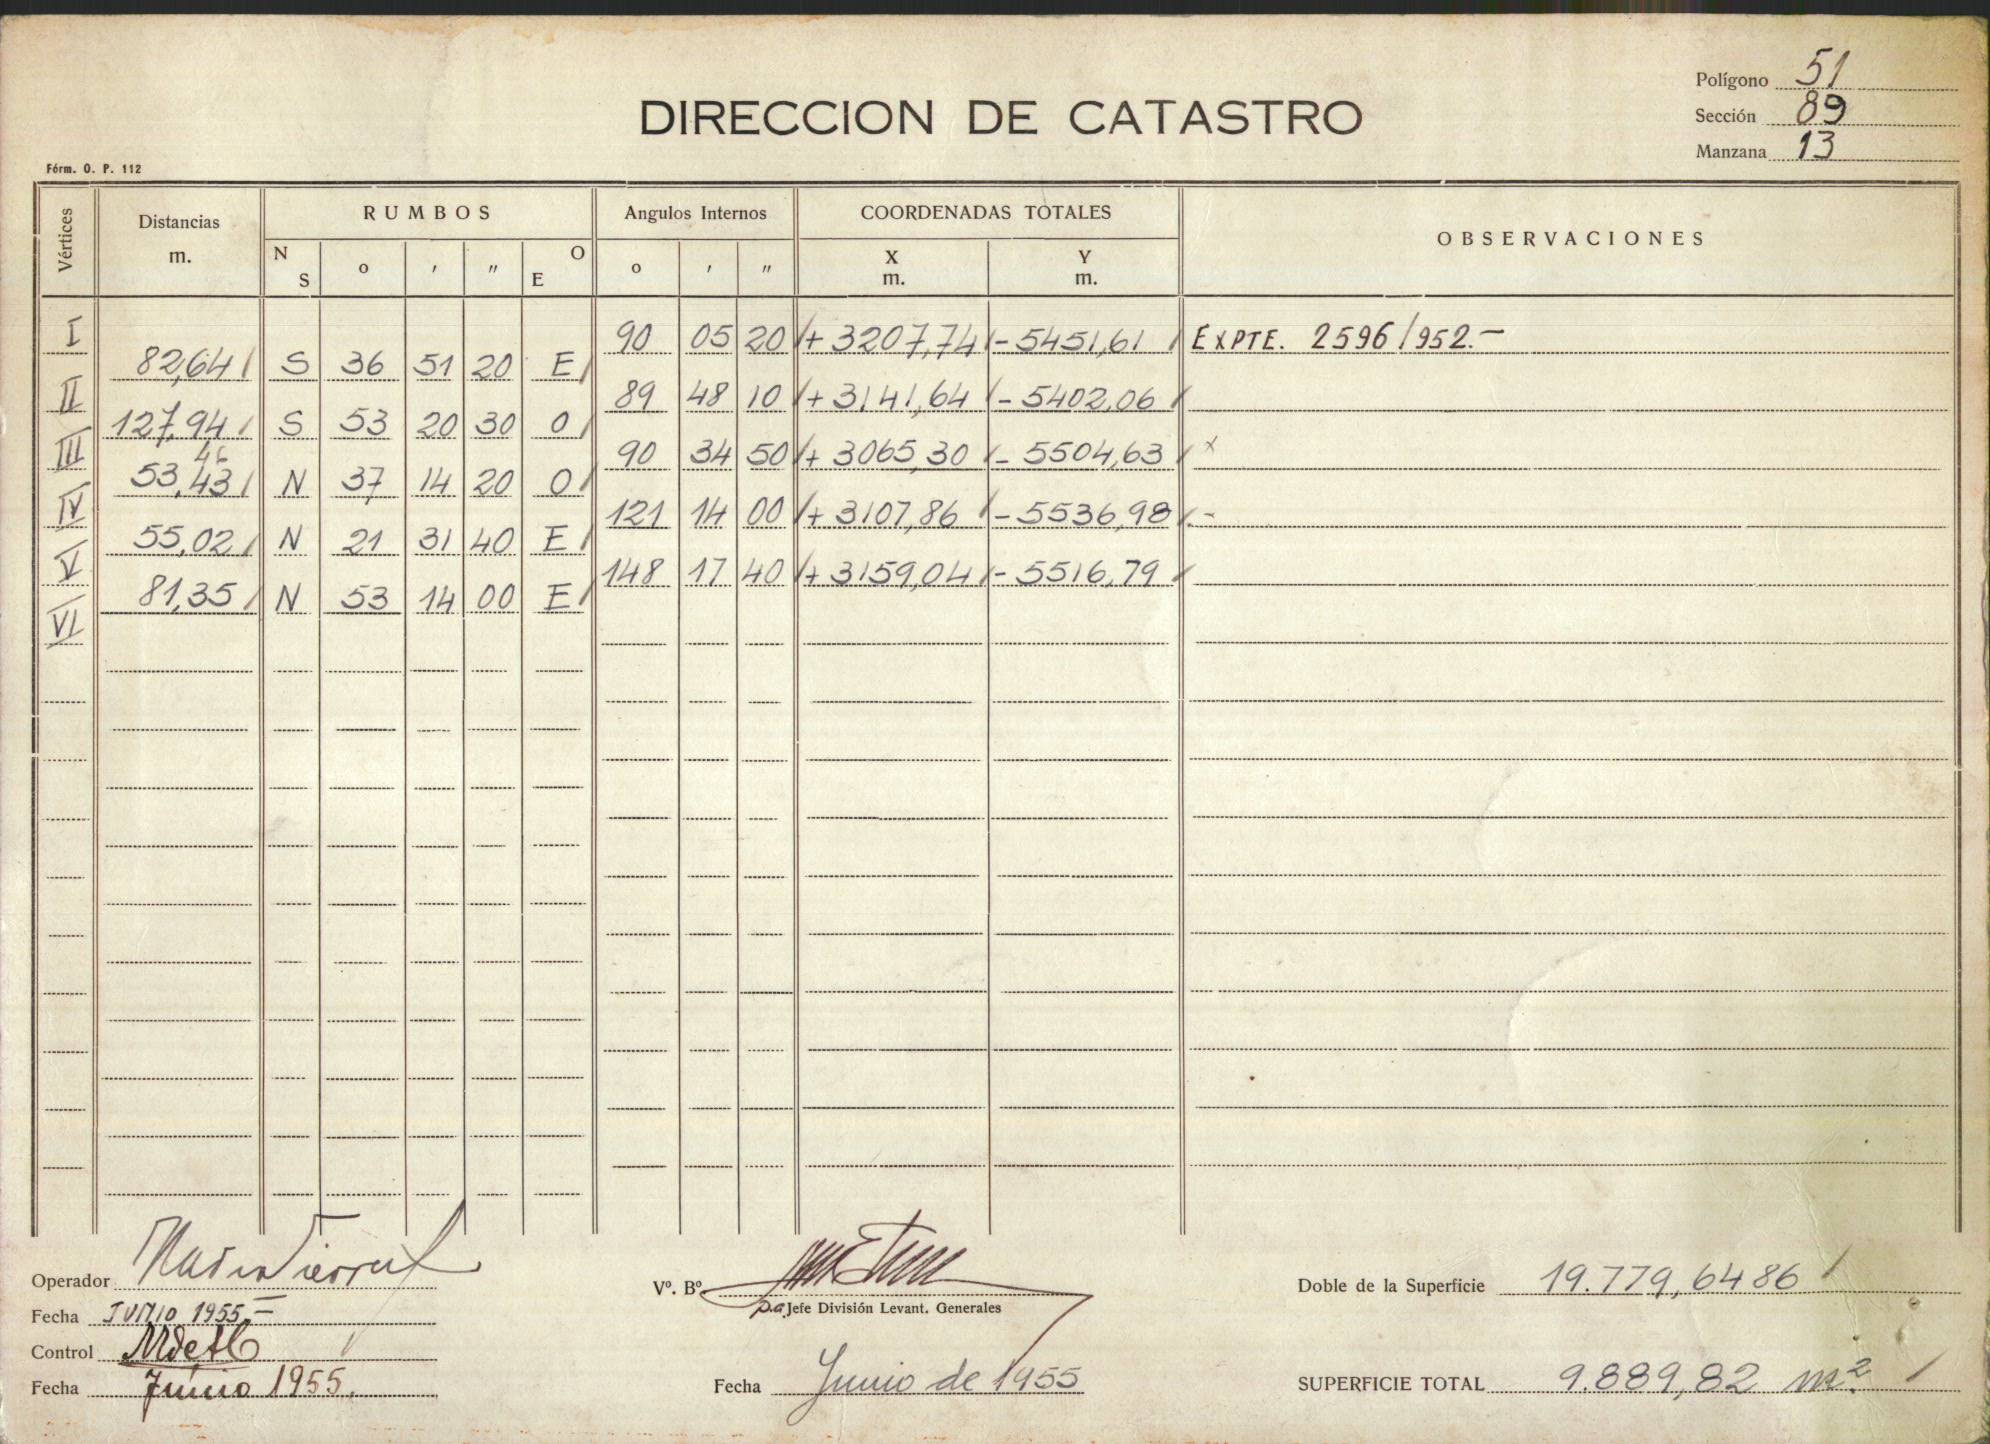 Polígono 51
DIRECCION DE CATASTRO
Sección 89
Manzana 13
Fórm. O. P. 112
Vértices Distancias m. RUMBOS Angulos Internos COORDENADAS TOTALES OBSERVACIONES
N S o ′ ″ O E o ′ ″ X m. Y m.
I 90 05 20 + 3207,74 - 5451,61 EXPTE. 2596/952.-
82,64 S 36 51 20 E
II 89 48 10 + 3141,64 - 5402,06
127,94 S 53 20 30 O
III 90 34 50 + 3065,30 - 5504,63 x
46
53,43 N 37 14 20 O
IV 121 14 00 + 3107,86 - 5536,98 -
55,02 N 21 31 40 E
V 148 17 40 + 3159,04 - 5516,79
81,35 N 53 14 00 E
VI
Operador
Vº. Bº.
Doble de la Superficie 19.779,6486
p.a. Jefe División Levant. Generales
Fecha JUNIO 1955.-
Control
Fecha Junio 1955.
Fecha Junio de 1955
SUPERFICIE TOTAL 9.889,82 m2.